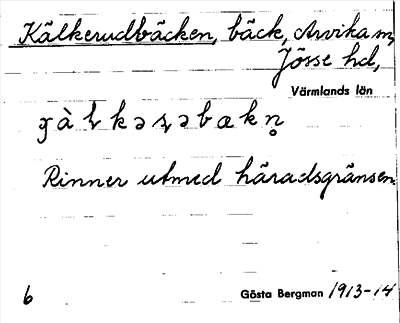 Kälkerudbäcken, bäck, Arvika m,
Jösse hd,
Värmlands län
Rinner utmed häradsgränsen.
6 Gösta Bergman 1913-14